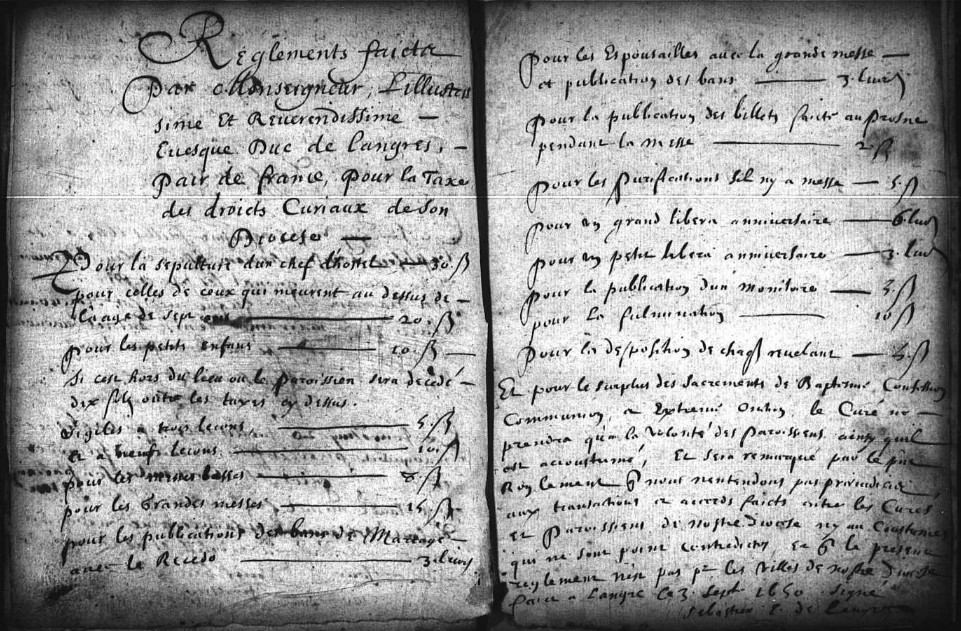 Reglements faicts
Par Monseigneur, L'illustris
sime Et Reverendissime —
Euesque Duc de Langres, —
Pair de france, Pour la Taxe
des droicts Curiaux de son
Diocese —
Pour la sepulture d'un chef d'hostel — 30 ß
pour celles de ceux qui meurent au dessus de —
laage de sept ans — 20 ß
pour les petits enfans — 10 ß —
Si cest hors du lieu ou le Paroissien sera decedé —
dix solz oultre les taxes cy dessus.
Vigiles a trois lecons, — 5 ß
Et a neuf lecons — 10 ß
pour les messes basses — 8 ß
pour les Grandes messes — 15 ß
pour les publications des bans de Mariage —
avec le Recedo — 3 liurs
Pour les Espousailles auec la grande messe —
et publication des bans — 3 liurs
Pour la publication des billets faicte au Prosne
pendant la messe — 2 ß
Pour les Purifications sil ny a messe — 5 ß
pour un grand libera anniversaire — 6 liurs
Pour un petit libera anniversaire — 3 liurs
Pour la publication d'un monitoire — 5 ß
pour La fulmination — 10 ß
Pour la deposition de chasq revelant — 5 ß
Et pour le surplus des Sacrements de Baptesme, Confession
Communion, et Extreme Onction, le Curé ne —
prendra qu'a la volonté des Paroissiens ainsy quil
est accoustumé, Et sera remarqué par le pnt
Reglement q nous nentendons pas prejudicier
aux transactions et accords faicts entre les Curés
et Paroissiens de nostre diocese ny au Coustumes
qui ne sont point contredictes, Et q le present
reglement n'est pas pr les Villes de nostre diocese
faict a Langre le 3 Sept 1650 signé
Sebastien E. de Langres